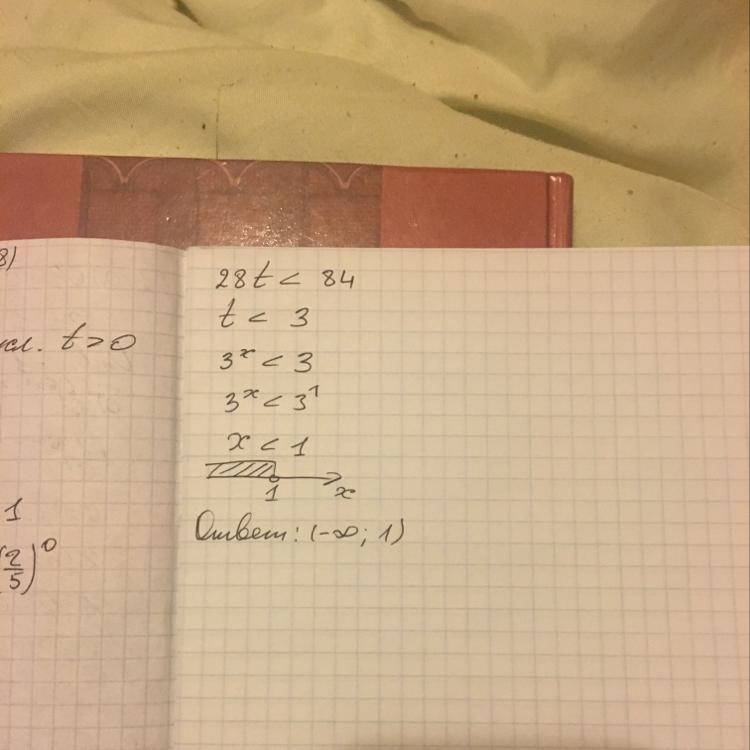 8)
t > 0
1
(2/5)^0
28t < 84
t < 3
3^x < 3
3^x < 3^1
x < 1
1 x
Ответ: (-∞; 1)